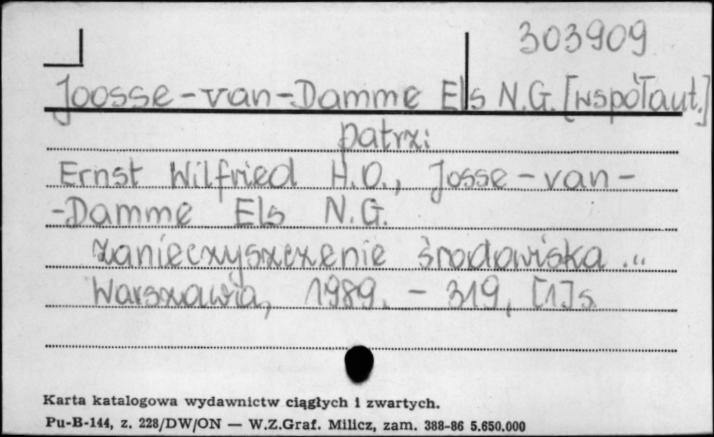 303909
Joosse-van-Damme Els N.G. [współaut.]
patrz:
Ernst Wilfried H.O., Josse-van-
-Damme Els N.G.
Zanieczyszczenie środowiska ...
Warszawa, 1989. - 319, [1]s.
Karta katalogowa wydawnictw ciągłych i zwartych.
Pu-B-144, z. 228/DW/ON — W.Z.Graf. Milicz, zam. 388-86 5.650.000